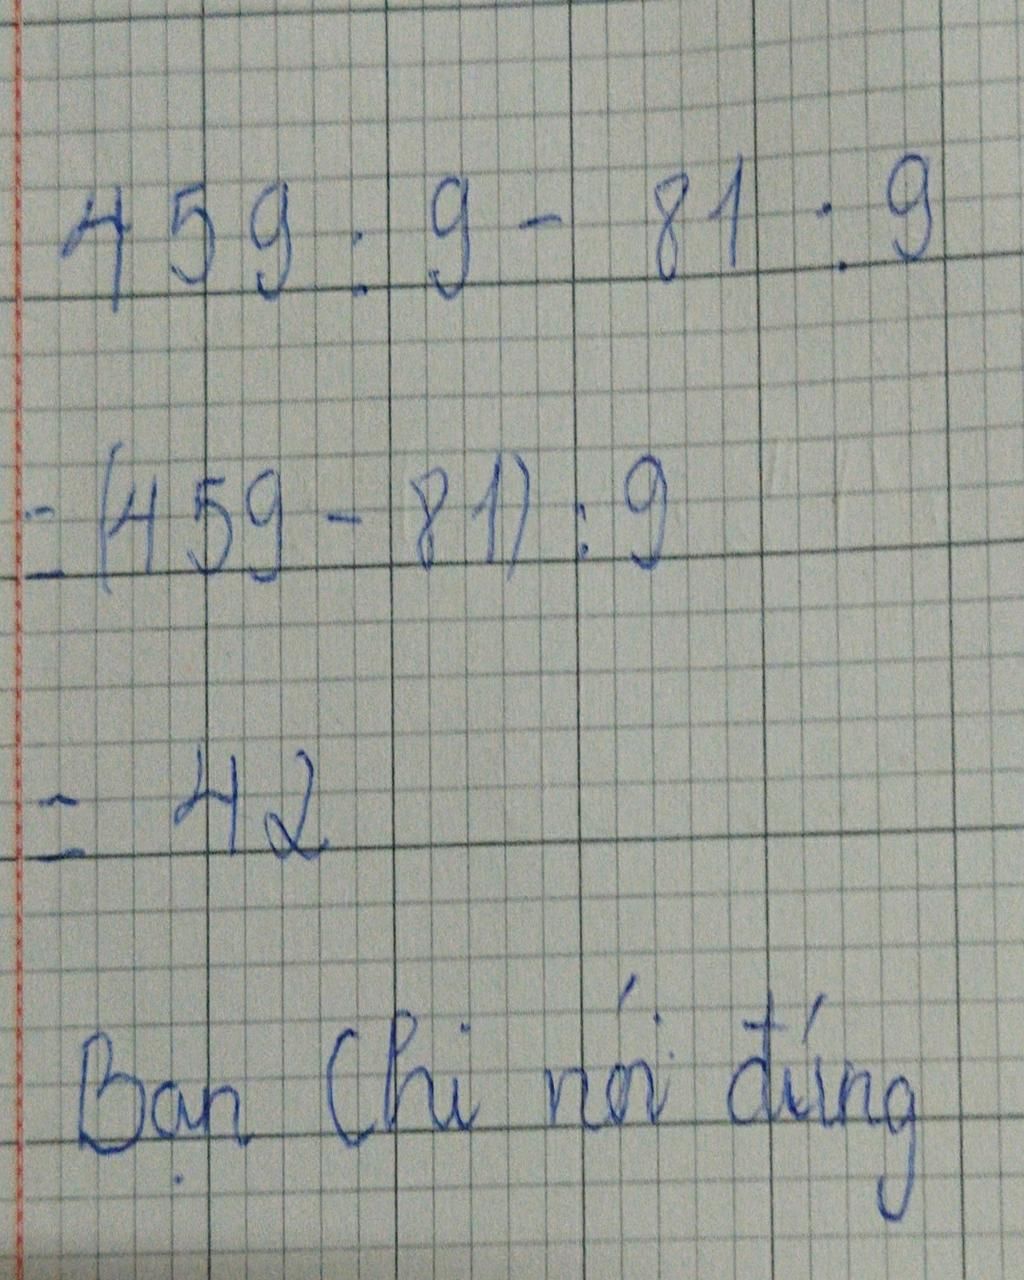 459 : 9 - 81 : 9
= (459 - 81) : 9
= 42
Bạn Chi nói đúng